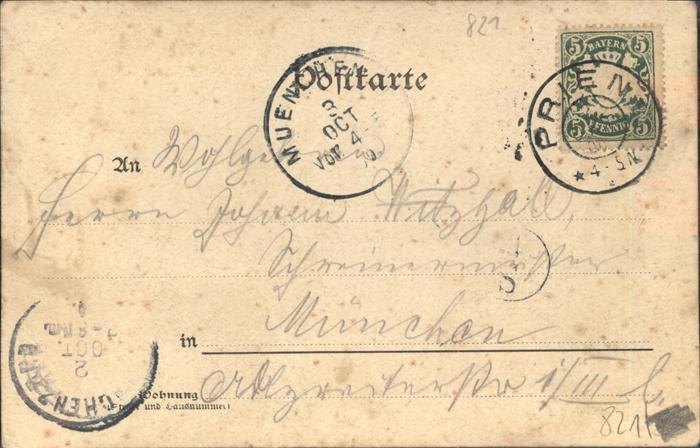 821
5 BAYERN 5
5 PFENNIG 5
PRIEN
★ 4-5 N
MUENCHEN
3
OCT
VOR 4-
Postkarte
An Wohlgeboren
Herrn Johann
Schreinermeister
München
in
Adlzreiterstr 1/III l.
Wohnung
(Straße und Hausnummer)
2
OCT
821